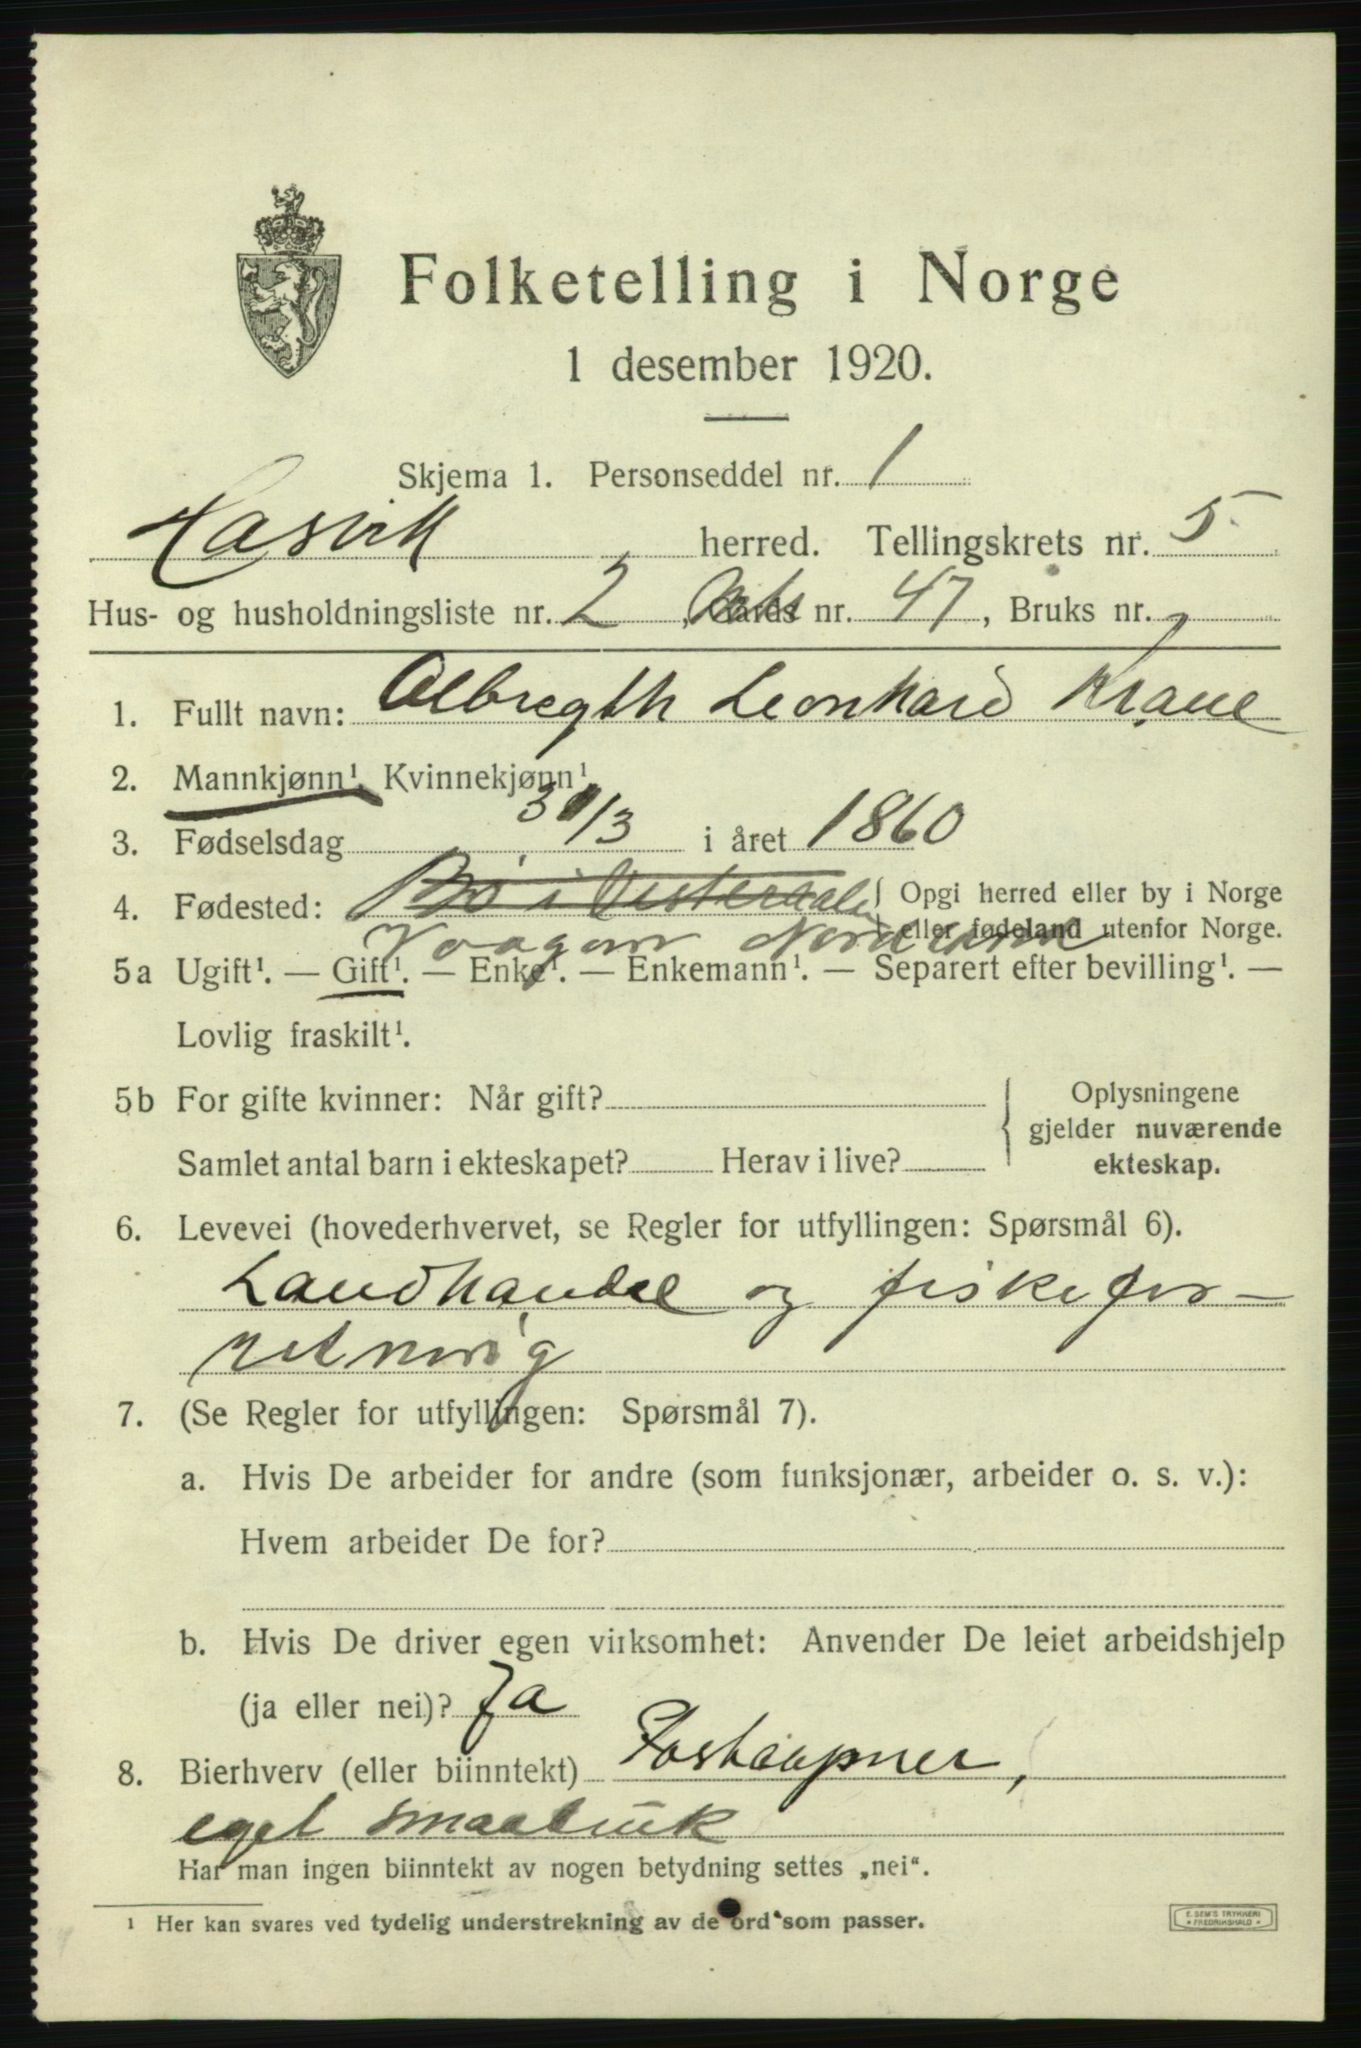 Folketelling i Norge
1 desember 1920.
Skjema 1. Personseddel nr. 1
Hasvik herred. Tellingskrets nr. 5
Hus- og husholdningsliste nr. 2, Gards nr. 47, Bruks nr.
1. Fullt navn: Albregth Leonhard Krane
2. Mannkjønn¹. Kvinnekjønn¹.
3. Fødselsdag 31/3 i året 1860
4. Fødested: Bø i Vesteraalen { Opgi herred eller by i Norge
Vaagan Nordland eller fødeland utenfor Norge.
5a Ugift¹. — Gift¹. — Enke¹. — Enkemann¹. — Separert efter bevilling¹. —
Lovlig fraskilt¹.
5b For gifte kvinner: Når gift? } Oplysningene
gjelder nuværende
Samlet antal barn i ekteskapet? Herav i live? ekteskap.
6. Levevei (hovederhvervet, se Regler for utfyllingen: Spørsmål 6).
Landhandel og fiskefor-
retning
7. (Se Regler for utfyllingen: Spørsmål 7).
a. Hvis De arbeider for andre (som funksjonær, arbeider o. s. v.):
Hvem arbeider De for?
b. Hvis De driver egen virksomhet: Anvender De leiet arbeidshjelp
(ja eller nei)? Ja
8. Bierhverv (eller biinntekt) Postaapner,
eget smaabruk
Har man ingen biinntekt av nogen betydning settes „nei“.
¹ Her kan svares ved tydelig understrekning av de ord som passer.
E. SEM'S TRYKKERI
FREDRIKSHALD